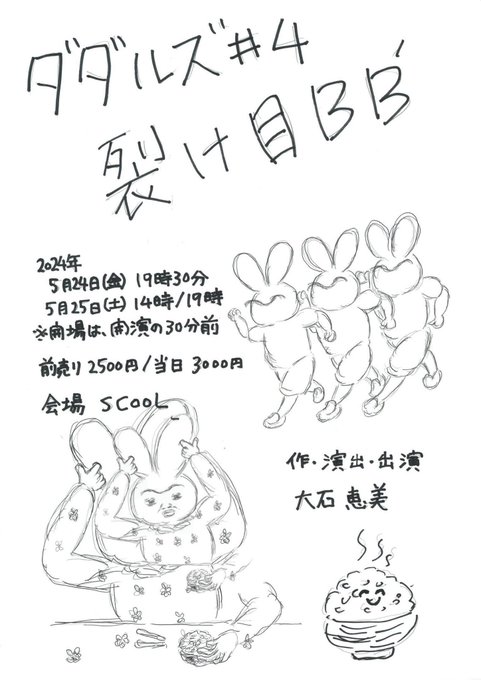 ダダルズ#4
裂け目BB'
2024年
5月24日(金) 19時30分
5月25日(土) 14時/19時
※開場は、開演の30分前
前売り2500円/当日3000円
会場 SCOOL
作・演出・出演
大石恵美